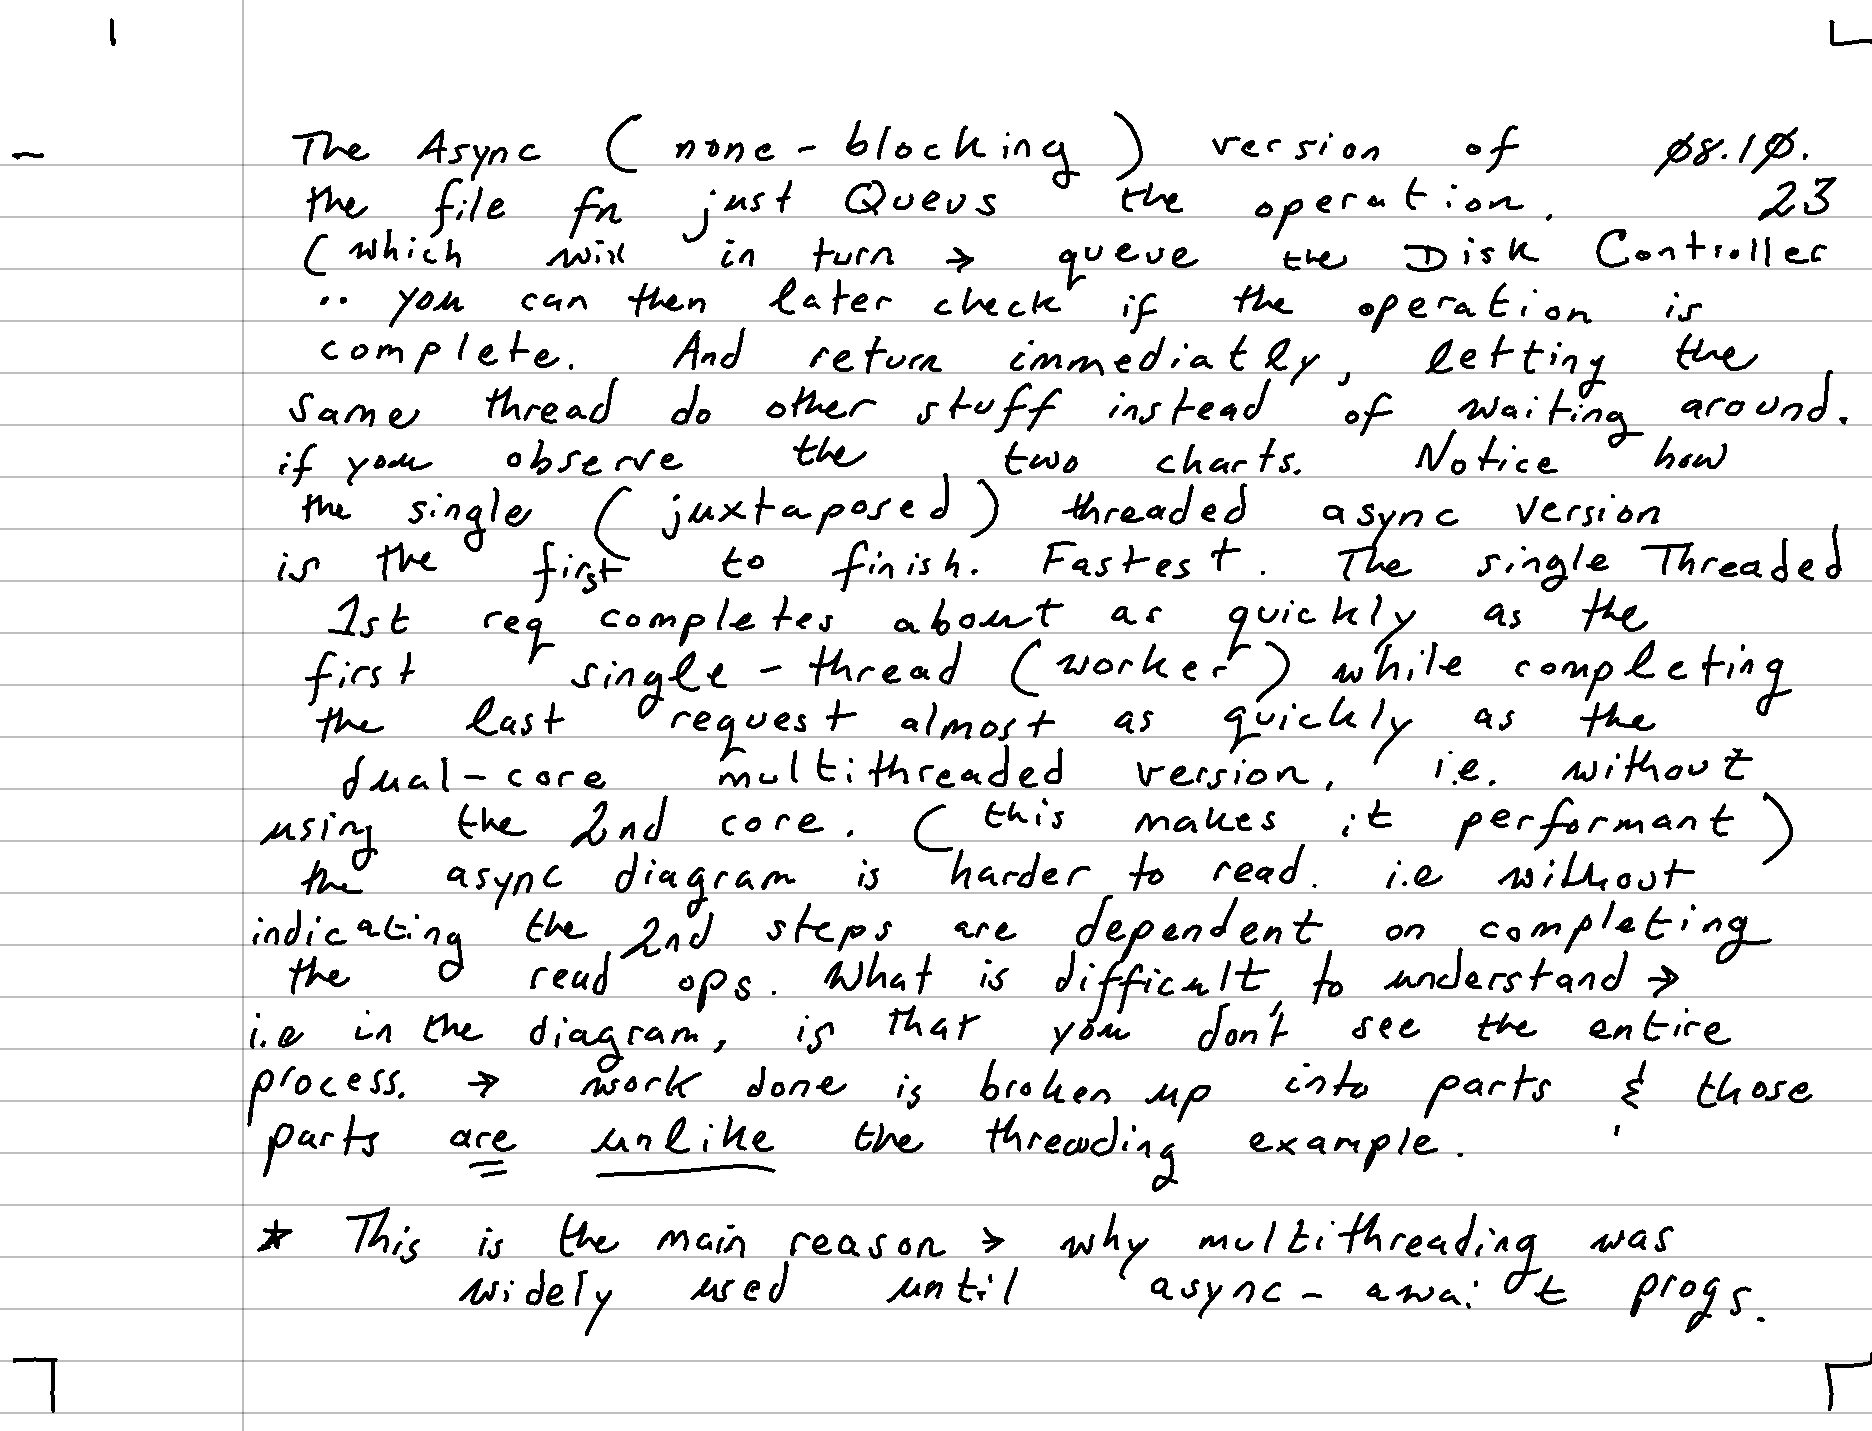 The Async (none-blocking) version of ø8.1ø.
the file fn just Queus the operation. 23
(which will in turn → queue the Disk Controller
.. you can then later check if the operation is
complete. And return immediatly, letting the
same thread do other stuff instead of waiting around.
if you observe the two charts. Notice how
the single (juxtaposed) threaded async version
is the first to finish. Fastest. The single Threaded
1st req completes about as quickly as the
first single-thread (worker) while completing
the last request almost as quickly as the
dual-core multithreaded version, i.e. without
using the 2nd core. (this makes it performant)
the async diagram is harder to read. i.e without
indicating the 2nd steps are dependent on completing
the read ops. What is difficult, to understand →
i.e in the diagram, is that you don't see the entire
process. → work done is broken up into parts & those
parts are unlike the threading example.
* This is the main reason → why multithreading was
widely used until async-await progs.